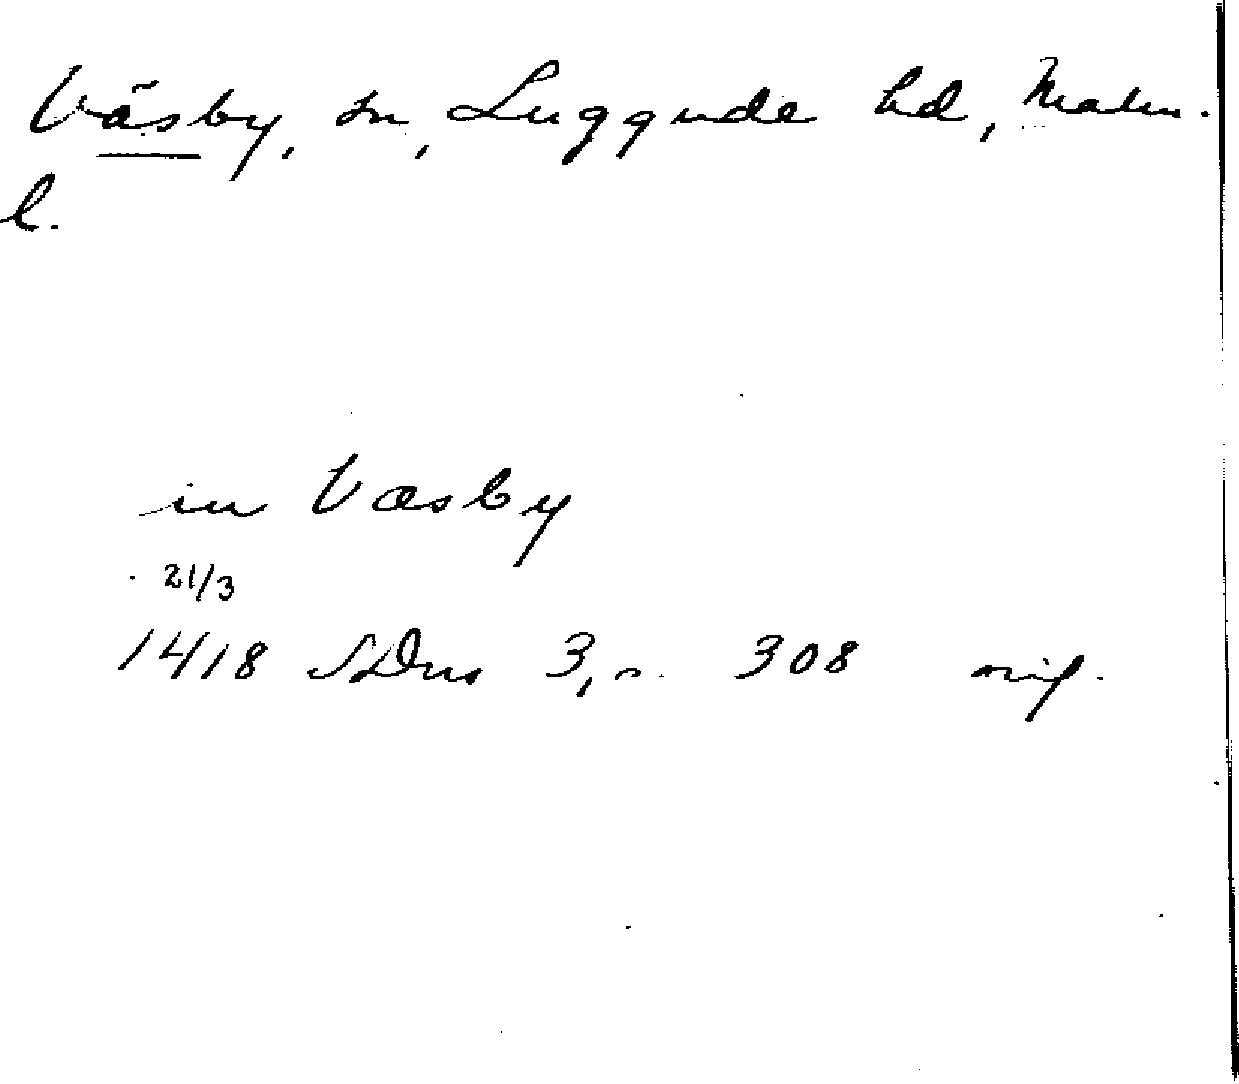 Väsby, sn, Luggude hd, Malm.
l.
in Væsby
21/3
1418 SDns 3, s. 308 orig.